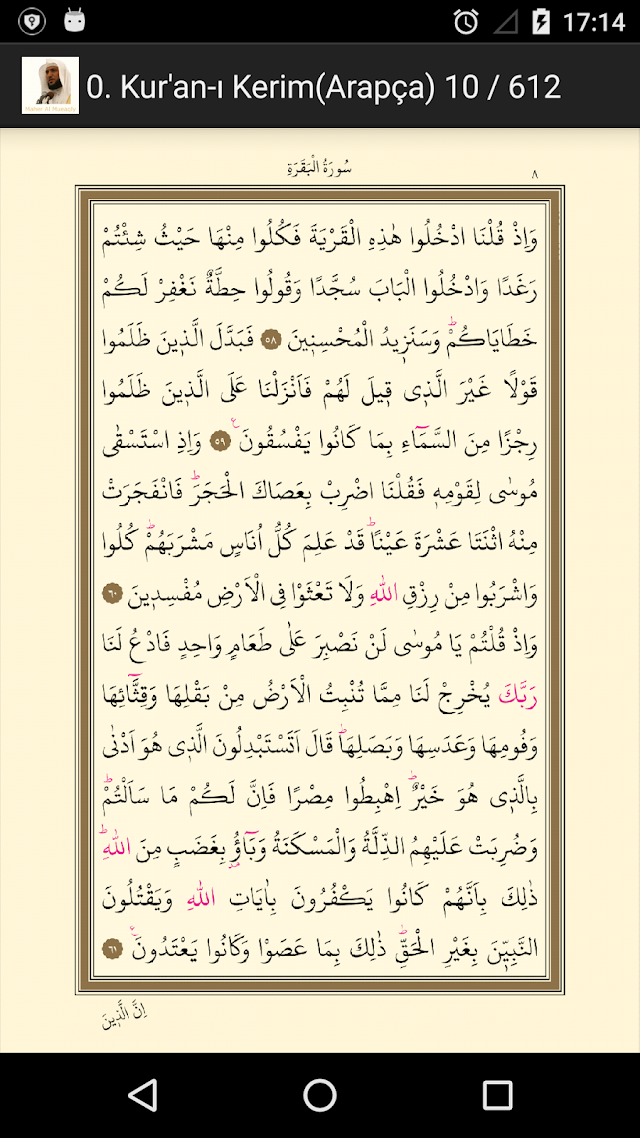 17:14
0. Kur'an-ı Kerim(Arapça) 10 / 612
سُورَةُ الْبَقَرَةِ
٨
وَاِذْ قُلْنَا ادْخُلُوا هٰذِهِ الْقَرْيَةَ فَكُلُوا مِنْهَا حَيْثُ شِئْتُمْ
رَغَدًا وَادْخُلُوا الْبَابَ سُجَّدًا وَقُولُوا حِطَّةٌ نَغْفِرْ لَكُمْ
خَطَايَاكُمْۜ وَسَنَزٖيدُ الْمُحْسِنٖينَ ٥٨ فَبَدَّلَ الَّذٖينَ ظَلَمُوا
قَوْلًا غَيْرَ الَّذٖي قٖيلَ لَهُمْ فَاَنْزَلْنَا عَلَى الَّذٖينَ ظَلَمُوا
رِجْزًا مِنَ السَّمَٓاءِ بِمَا كَانُوا يَفْسُقُونَ ع ٥٩ وَاِذِ اسْتَسْقٰى
مُوسٰى لِقَوْمِهٖ فَقُلْنَا اضْرِبْ بِعَصَاكَ الْحَجَرَۜ فَانْفَجَرَتْ
مِنْهُ اثْنَتَا عَشْرَةَ عَيْنًاۜ قَدْ عَلِمَ كُلُّ اُنَاسٍ مَشْرَبَهُمْۜ كُلُوا
وَاشْرَبُوا مِنْ رِزْقِ اللّٰهِ وَلَا تَعْثَوْا فِي الْاَرْضِ مُفْسِدٖينَ ٦٠
وَاِذْ قُلْتُمْ يَا مُوسٰى لَنْ نَصْبِرَ عَلٰى طَعَامٍ وَاحِدٍ فَادْعُ لَنَا
رَبَّكَ يُخْرِجْ لَنَا مِمَّا تُنْبِتُ الْاَرْضُ مِنْ بَقْلِهَا وَقِثَّٓائِهَا
وَفُومِهَا وَعَدَسِهَا وَبَصَلِهَاۜ قَالَ اَتَسْتَبْدِلُونَ الَّذٖي هُوَ اَدْنٰى
بِالَّذٖي هُوَ خَيْرٌۜ اِهْبِطُوا مِصْرًا فَاِنَّ لَكُمْ مَا سَاَلْتُمْۜ
وَضُرِبَتْ عَلَيْهِمُ الذِّلَّةُ وَالْمَسْكَنَةُ وَبَٓاؤُ۫ بِغَضَبٍ مِنَ اللّٰهِۜ
ذٰلِكَ بِاَنَّهُمْ كَانُوا يَكْفُرُونَ بِاٰيَاتِ اللّٰهِ وَيَقْتُلُونَ
النَّبِيّٖنَ بِغَيْرِ الْحَقِّۜ ذٰلِكَ بِمَا عَصَوْا وَكَانُوا يَعْتَدُونَ۟ ٦١
اِنَّ الَّذٖينَ